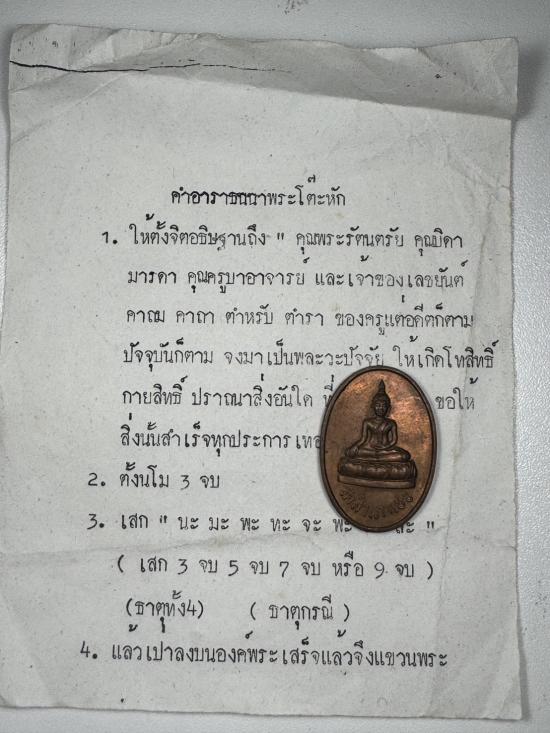 คำอาราธนนาพระโต๊ะหัก
1. ให้ตั้งจิตอธิษฐานถึง " คุณพระรัตนตรัย คุณบิดา
มารดา คุณครูบาอาจารย์ และเจ้าของเลขยันต์
คาถม คาถา ตำหรับ ตำรา ของครูแต่อดีตก็ตาม
ปัจจุบันก็ตาม จงมาเป็นพละวะปัจจัย ให้เกิดโทสิทธิ์
กายสิทธิ์ ปราถนาสิ่งอันใด ขอให้
สิ่งนั้นสำเร็จทุกประการ
2. ตั้งนโม 3 จบ
3. เสก " นะ มะ พะ ทะ จะ "
( เสก 3 จบ 5 จบ 7 จบ หรือ 9 จบ )
(ธาตุทั้ง4) ( ธาตุกรณี )
4. แล้วเป่าลงบนองค์พระ เสร็จแล้วจึงแขวนพระ